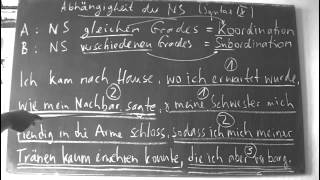 Abhängigkeit der NS (Syntax)
A: NS gleichen Grades = Koordination
B: NS verschiedenen Grades = Subordination
Ich kam nach Hause, wo ich erwartet wurde,
wie mein Nachbar sagte, & meine Schwester mich
freudig in die Arme schloss, sodass ich mich meiner
Tränen kaum erwehren konnte, die ich aber verbarg.